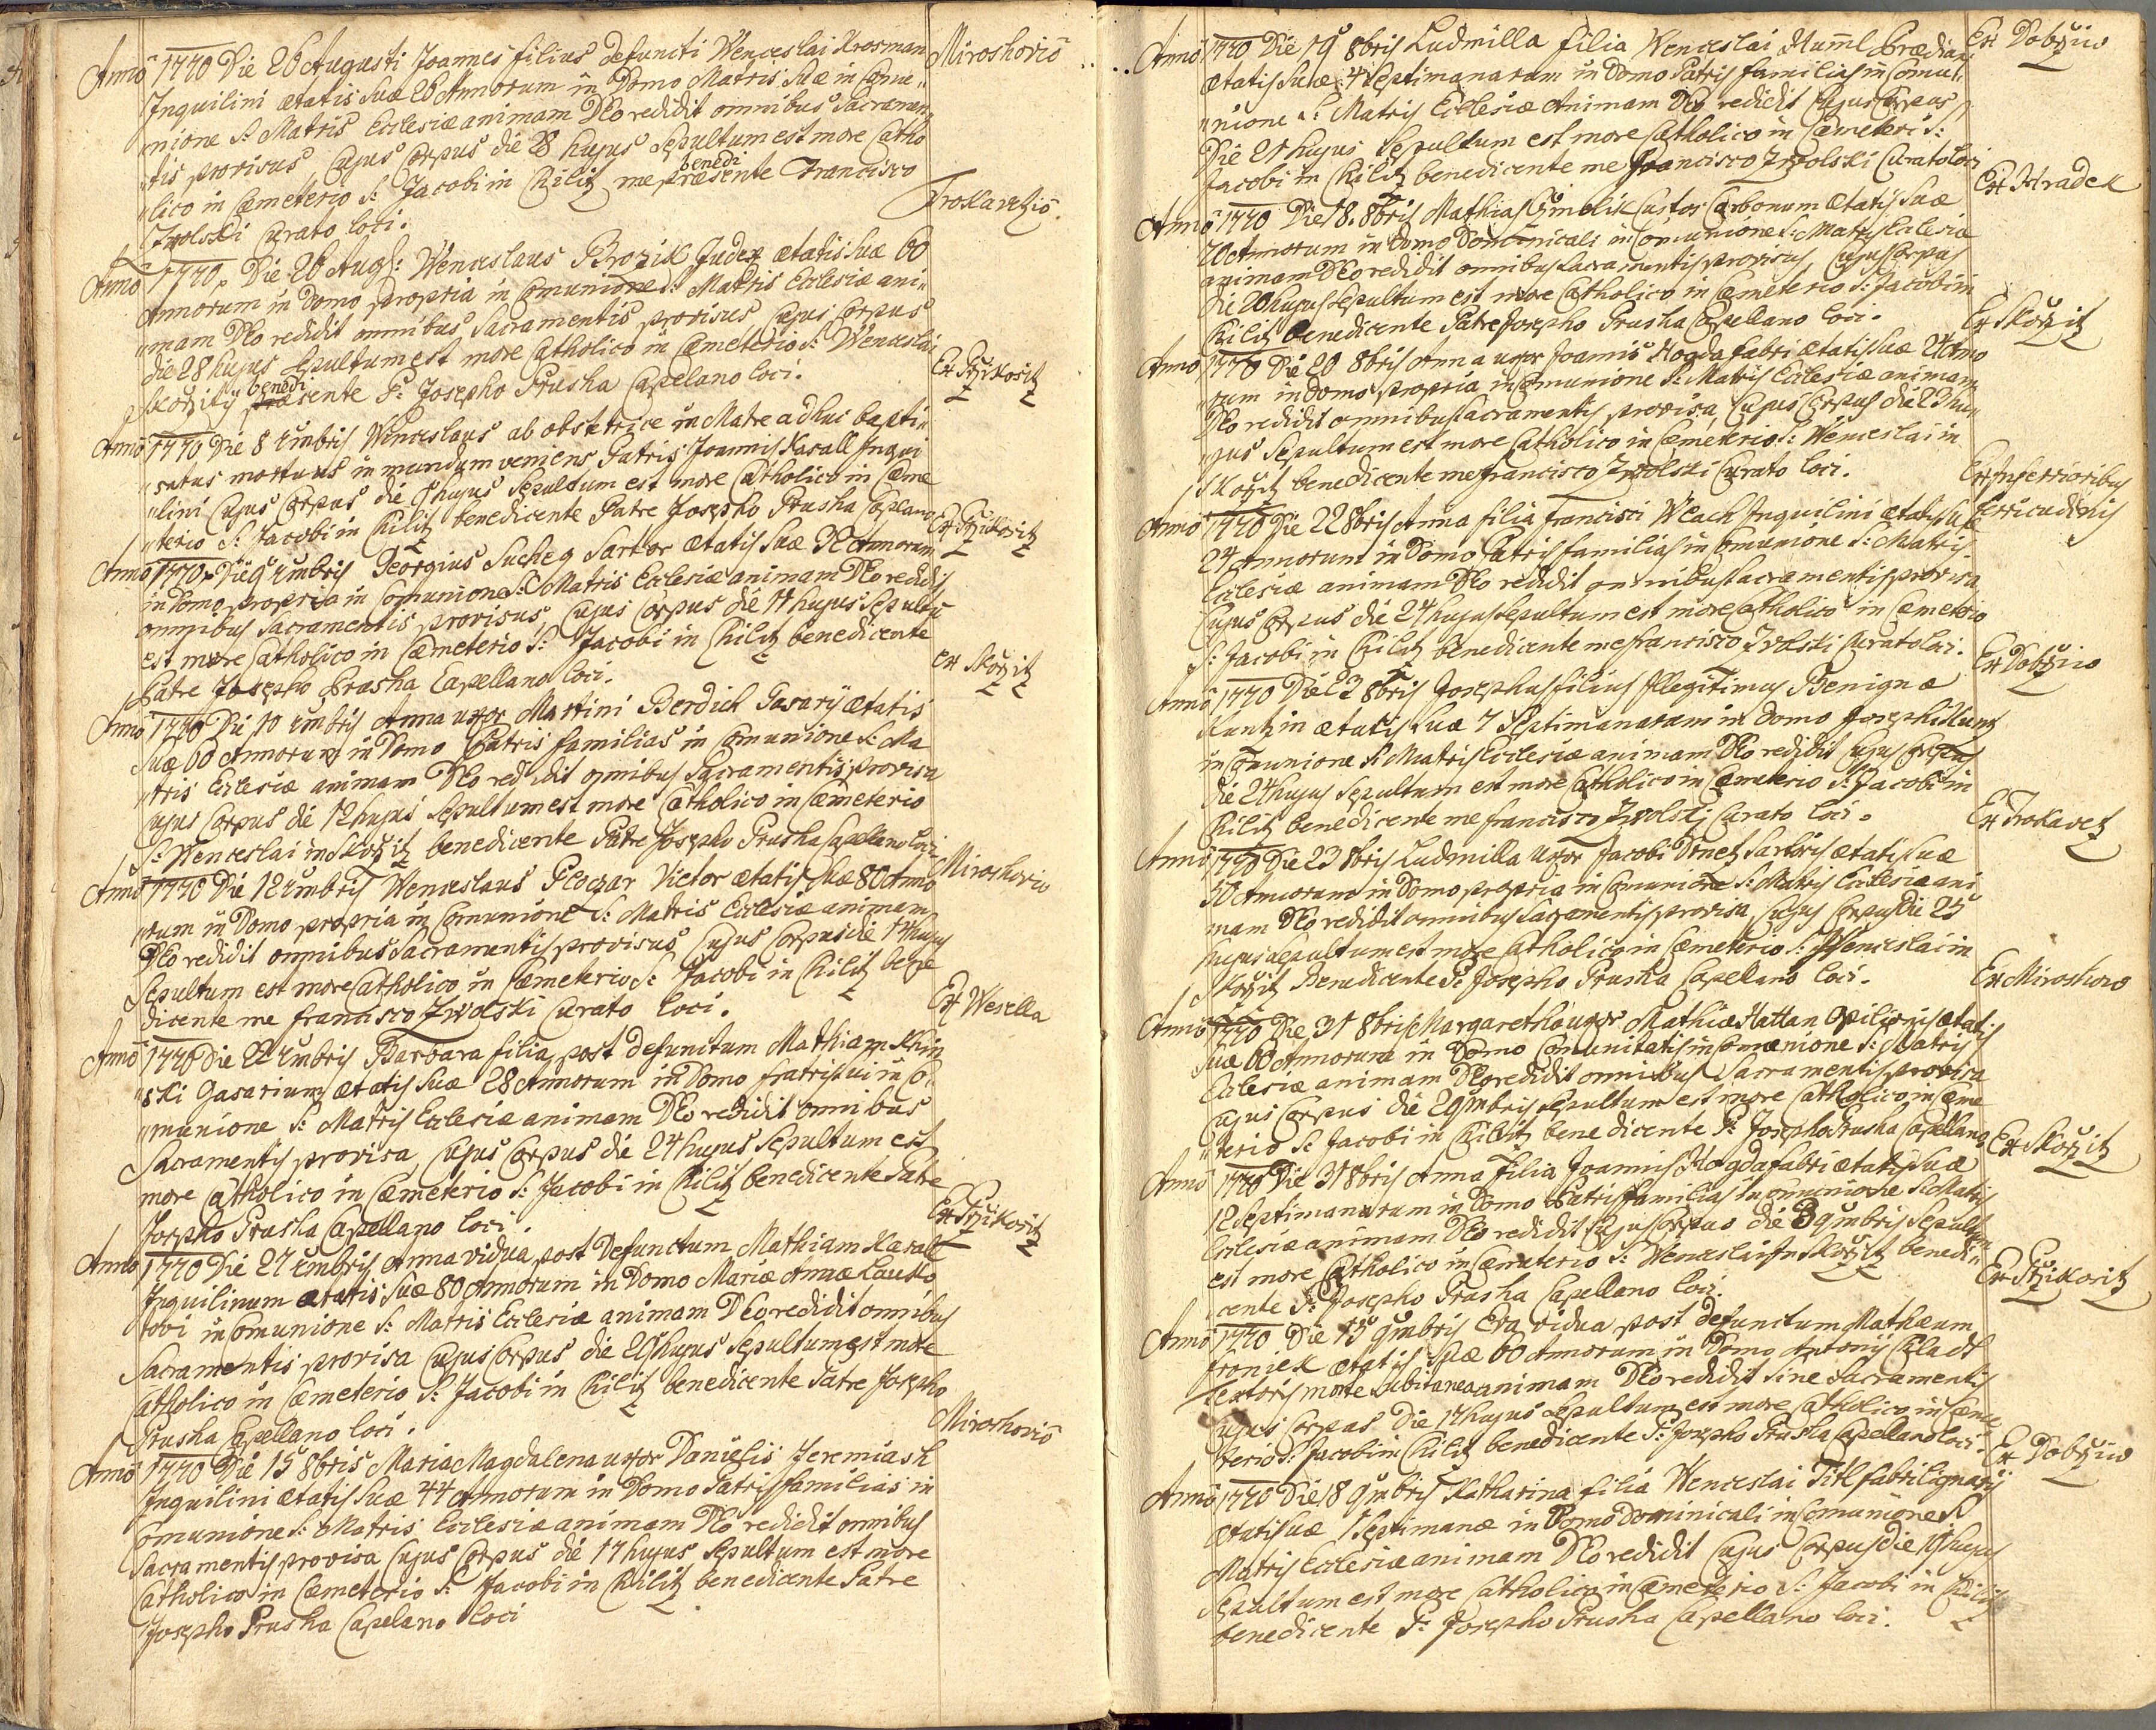 Anno 1770 Die 26 Augusti Joannes filius defuncti Wenceslai Krosman Miroshovio
Inquilini ætatis suæ 26 Annorum in Domo Matris suæ in Comu„
„nione S: Matris Ecclesiæ animam Deo redidit omnibus Sacramen„
„tis provisus Cujus Corpus die 28 hujus Sepultum est more Catho
„lico in Cæmeterio S: Jacobi in Kiliz me præsente benedi Francisco
Zwolski Curato loci.
Trokavezio.
Anno 1770 Die 26 Aug: Wenceslaus Brozik Judex ætatis suæ 60
Annorum in Domo propria in Comunione S: Matris Ecclesiæ ani„
„mam Deo redidit omnibus Sacramentis provisus Cujus Corpus
die 28 hujus Sepultum est more Catholico in Cæmeterio S: Wenceslai
Skorzity benedi præsente P: Josepho Prusha Capelano loci.
Ex Przikositz
Anno 1770 Die 8 7mbris Wenceslaus ab obstetrice in Matre adhuc bapti„
„satus mortuus in mundum veniens Patris Joannis Karall Inqui
„lini Cujus Corpus die 9 hujus Sepultum est more Catholico in Cæme
„terio S: Jacobi in Kilitz benedicente Patre Josepho Prusha Caplano
Ex Przikositz
Anno 1770 Die 9 7mbris Georgius Sucheg Sartor ætatis suæ 32 Annorum
in Domo propria in Comunione S: Matris Ecclesiæ animam Deo redidit
omnibus Sacramentis provisus, Cujus Corpus die 11 hujus Sepultum
est more Catholico in Cæmeterio S: Jacobi in Kilitz benedicente
Patre Josepho Prusha Capellano loci.
Ex Skorzitz
Anno 1770 Die 10 7mbris Anna uxor Martini Berdich Gasarij ætatis
suæ 60 Annorum in Domo Patris familias in Comunione S: Ma
„tris Ecclesiæ animam Deo redidit omnibus Sacramentis provisa
Cujus Corpus die 12 hujus Sepultum est more Catholico in Cæmeterio
S: Wenceslai in Skorzitz benedicente Patre Josepho Prusha Capellano loci.
Miroshovio
Anno 1770 Die 12 7mbris Wenceslaus Ploczar Victor ætatis suæ 80 Anno
„rum in Domo propria in Comunione S: Matris Ecclesiæ animam
Deo redidit omnibus Sacramentis provisus Cujus Corpus die 14 hujus
Sepultum est more Catholico in Cæmeterio S: Jacobi in Kilitz bene
dicente me Francisco Zwolski Curato loci.
Ex Wesella
Anno 1770 Die 22 7mbris Barbara filia post defunctum Mathiam Khin
„ski Gasarium ætatis suæ 28 Annorum in Domo fratris sui in Co„
„munione S: Matris Ecclesiæ animam Deo redidit omnibus
Sacramentis provisa, Cujus Corpus die 24 hujus Sepultum est
more Catholico in Cæmeterio S: Jacobi in Kilitz benedicente Patre
Josepho Prusha Capellano loci.
Ex Przikositz
Anno 1770 Die 27 7mbris Anna vidua post Defunctum Mathiam Karall
Inquilinum ætatis suæ 80 Annorum in Domo Mariæ Annæ Lausto
tovi in Comunione S: Matris Ecclesiæ animam Deo redidit omnibus
Sacramentis provisa Cujus Corpus die 29 hujus Sepultum est more
Catholico in Cæmeterio S: Jacobi in Kilitz benedicente Patre Josepho
Prusha Capellano loci.
Miroshovio
Anno 1770 Die 15 8bris Maria Magdalena uxor Danielis Jeremiash
Inquilini ætatis suæ 44 Annorum in Domo Patris familias in
Comunione S: Matris Ecclesiæ animam Deo redidit omnibus
Sacramentis provisa Cujus Corpus die 17 hujus Sepultum est more
Catholico in Cæmeterio S: Jacobi in Kilitz benedicente Patre
Josepho Prusha Capelano loci
Anno 1770 Die 19 8bris Ludmilla filia Wenceslai Huml Prædiarij Ex Dobrziw
ætatis suæ 4 Septimanarum in Domo Patris familias in Comu„
„nione S: Matris Ecclesiæ Animam Deo redidit Cujus Corpus
Die 21 hujus Sepultum est more Catholico in Cæmeterio S:
Jacobi in Kilitz benedicente me Francisco Zwolski Curato loci
Ex Hradek
Anno 1770 Die 18. 8bris Mathias Custos Carbonum ætatis suæ
70 Annorum in Domo Dominicali in Comunione S: Matris Ecclesiæ
animam Deo redidit omnibus Sacramentis provisus Cujus Corpus
die 20 hujus Sepultum est more Catholico in Cæmeterio S: Jacobi in
Kilitz benedicente Patre Josepho Prusha Capellano loci.
Ex Skorzitz
Anno 1770 Die 20 8bris Anna uxor Joannis Hogda fabri ætatis suæ 24 Anno
„rum in Domo propria in Comunione S: Matris Ecclesiæ animam
Deo redidit omnibus Sacramentis provisa, Cujus Corpus die 23 hu„
„jus Sepultum est more Catholico in Cæmeterio S: Wenceslai in
Skorzitz benedicente me Francisco Zwolski Curato loci.
Ex Inferrioribus
Ferricudinis
Anno 1770 Die 22 8bris Anna filia Francisci Wlach Inquilini ætatis suæ
24 Annorum in Domo Patris familias in Comunione S: Matris
Ecclesiæ animam Deo redidit omnibus Sacramentis provisa
Cujus Corpus die 24 hujus Sepultum est more Catholico in Cæmeterio
S: Jacobi in Kilitz benedicente me Francisco Zwolski Curato loci.
Ex Dobrziw
Anno 1770 Die 23 8bris Josephus filius Illegitimus Benignæ
Kuntzin ætatis suæ 7 Septimanarum in Domo Josephi Kuntz
in Comunione S: Matris Ecclesiæ animam Deo redidit Cujus Corpus
die 24 hujus Sepultum est more Catholico in Cæmeterio S: Jacobi in
Kilitz benedicente me Francisco Zwolski Curato loci.
Ex Trokavetz
Anno 1770 Die 23 8bris Ludmilla Uxor Jacobi Donetz Sartoris ætatis suæ
50 Annorum in Domo propria in Comunione S: Matris Ecclesiæ ani
mam Deo redidit omnibus Sacramentis provisa, Cujus Corpus Die 25
hujus Sepultum est more Catholico in Cæmeterio S: Wenceslai in
Skorzitz Benedicente P: Josepho Prusha Capellano loci.
Ex Miroshovio
Anno 1770 Die 31 8bris Margaretha uxor Mathiæ Hattan Opilionis ætatis
suæ 60 Annorum in Domo Comunitatis in Comunione S: Matris
Ecclesiæ animam Deo redidit omnibus Sacramentis provisa
Cujus Corpus die 2 9mbris Sepultum est more Catholico in Cæme
„terio S: Jacobi in Kilitz benedicente P: Josepho Prusha Capellano
Ex Skorzitz
Anno 1770 Die 31 8bris Anna Filia Joannis Hogda fabri ætatis suæ
12 Septimanarum in Domo Patris familias in Comunione S: Matris
Ecclesiæ animam Deo redidit Cujus Corpus die 3 9mbris Sepultum
est more Catholico in Cæmeterio S: Wenceslai in Skorzitz benedi„
„cente P: Josepho Prusha Capellano loci.
Ex Przikositz
Anno 1770 Die 15 9mbris Eva vidua post defunctum Mathæum
Froniek ætatis suæ 60 Annorum in Domo Antonij Kladt
Textoris morte subitanea animam Deo redidit sine Sacramentis
Cujus Corpus Die 17 hujus Sepultum est more Catholico in Cæme
terio S: Jacobi in Kilitz benedicente P: Josepho Prusha Capellano loci.
Ex Dobrziw
Anno 1770 Die 18 9mbris Katharina filia Wenceslai Titl fabri lignarij
ætatis suæ 1 Septimanæ in Domo Dominicali in Comunione S:
Matris Ecclesiæ animam Deo redidit Cujus Corpus Die 19 hujus
Sepultum est more Catholico in Cæmeterio S: Jacobi in Kilitz
benedicente P: Josepho Prusha Capellano loci.